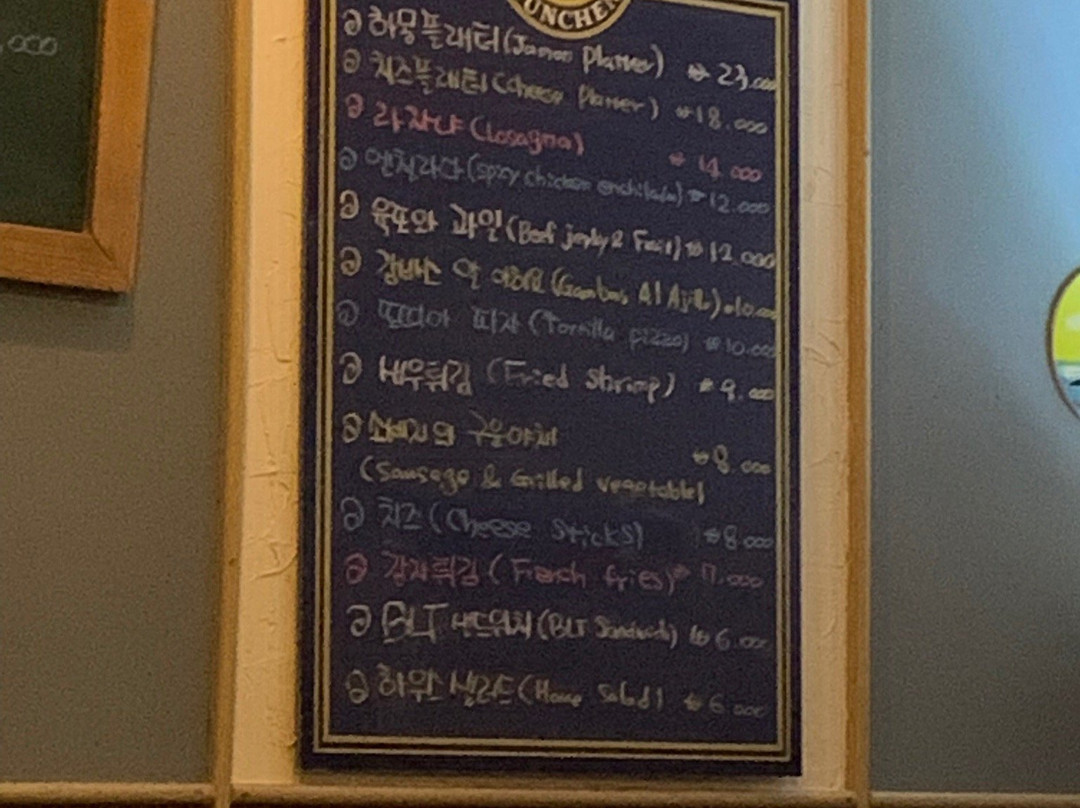 ,000
UNCHEN
하몽플래터(Jamon Platter) ₩23,000
치즈플래터(Cheese Platter) ₩18.000
라자냐(Lasagna) ₩14.000
엔칠라다(Spicy chicken enchilada) ₩12.000
육포와 과일(Beef jerky & Fruit) ₩12.000
감바스 알 아히요(Gambas Al Ajillo) ₩10.000
또띠아 피자(Tortilla pizza) ₩10.000
새우튀김(Fried Shrimp) ₩9.000
소세지와 구운야채 ₩8.000
(Sausage & Grilled vegetable)
치즈(Cheese sticks) ₩8.000
감자튀김(French fries) ₩7.000
BLT 샌드위치(BLT Sandwich) ₩6.000
하우스 샐러드(House Salad) ₩6.000